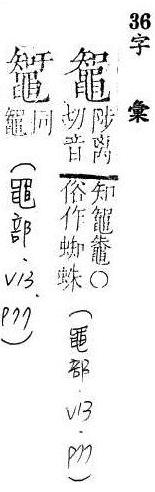 36
字彙
鼅 陟离
切音
知鼅鼄○
俗作蜘蛛
(黽部．V13．P77)
同
鼅
(黽部．V13．P77)